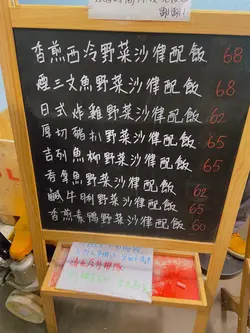 香煎西冷野菜沙律配飯 68
三文魚野菜沙律配飯 68
日式炸雞野菜沙律配飯 62
厚切豬扒野菜沙律配飯 65
吉列魚柳野菜沙律配飯 65
野菜沙律配飯 62
鹹牛脷野菜沙律配飯 65
香煎素鴨野菜沙律配飯 60